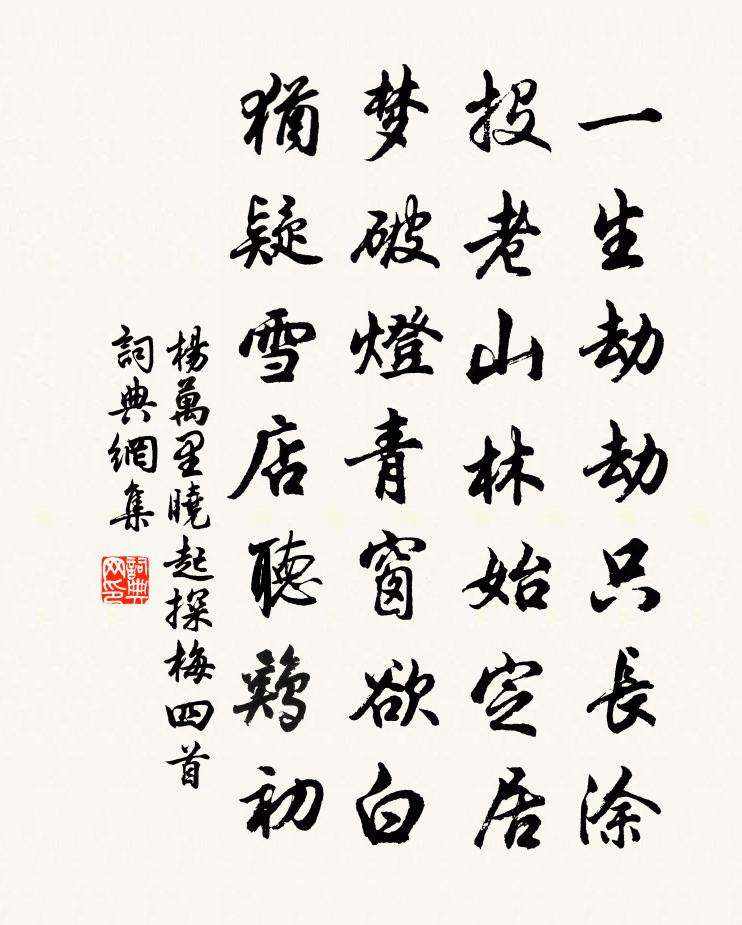 一生劫劫只長涂
投老山林始定居
梦破燈青窗欲白
猶疑雪店聽鷄初
楊萬里曉起探梅四首
詞典網集
詞典
网印